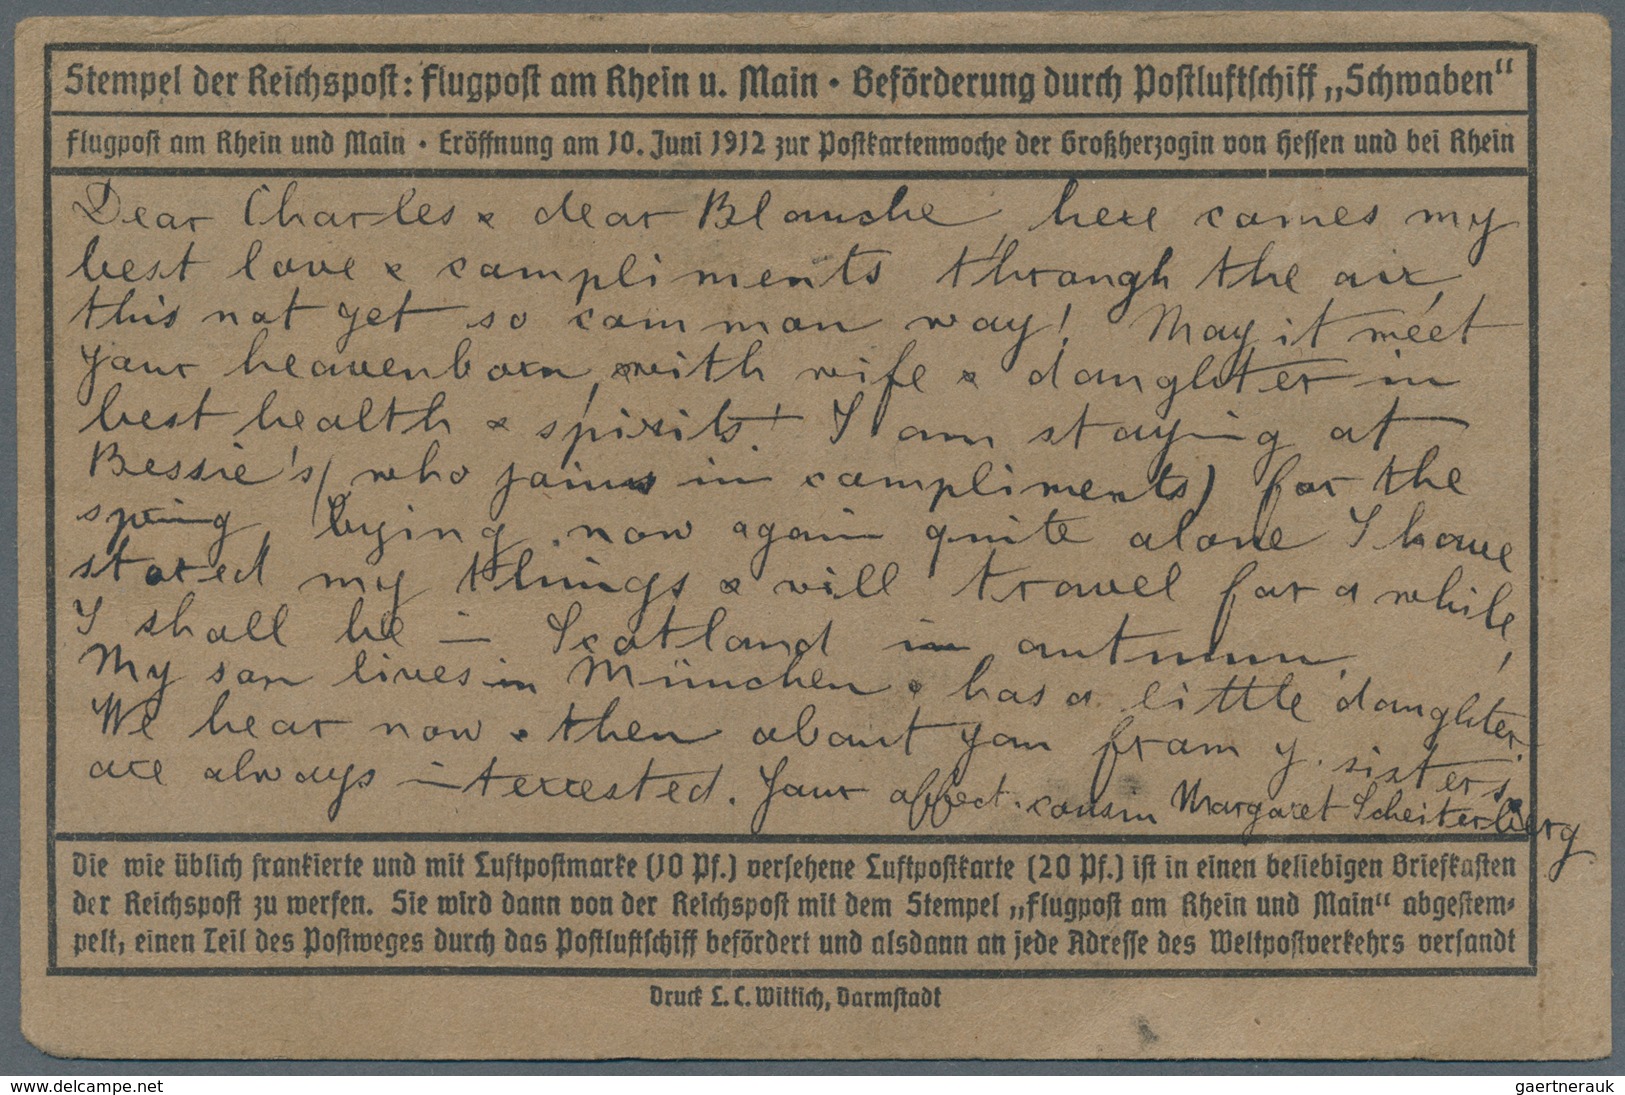 Stempel der Reichspost: Flugpost am Rhein u. Main • Beförderung durch Postluftschiff „Schwaben“
Flugpost am Rhein und Main • Eröffnung am 10. Juni 1912 zur Postkartenwoche der Großherzogin von Hessen und bei Rhein
Dear Charles & dear Blanche, here comes my
best love & compliments through the air,
this not yet so common way! May it meet
your heavenborn, with wife & daughter in
best health & spirits! I am staying at
Bessie's (who joins in compliments) for the
spring, now again quite alone I have
stored my things & will travel for a while,
I shall be in Scotland in autumn.
My son lives in München & has a little daughter.
We hear now & then about you from y. sisters,
are always interrested. Your affect. cousin Margaret Scheiterberg
Die wie üblich frankierte und mit Luftpostmarke (10 Pf.) versehene Luftpostkarte (20 Pf.) ist in einen beliebigen Briefkasten
der Reichspost zu werfen. Sie wird dann von der Reichspost mit dem Stempel „Flugpost am Rhein und Main“ abgestem-
pelt, einen Teil des Postweges durch das Postluftschiff befördert und alsdann an jede Adresse des Weltpostverkehrs versandt
Druck L. C. Wittich, Darmstadt
delcampe.net
gaertnerauk